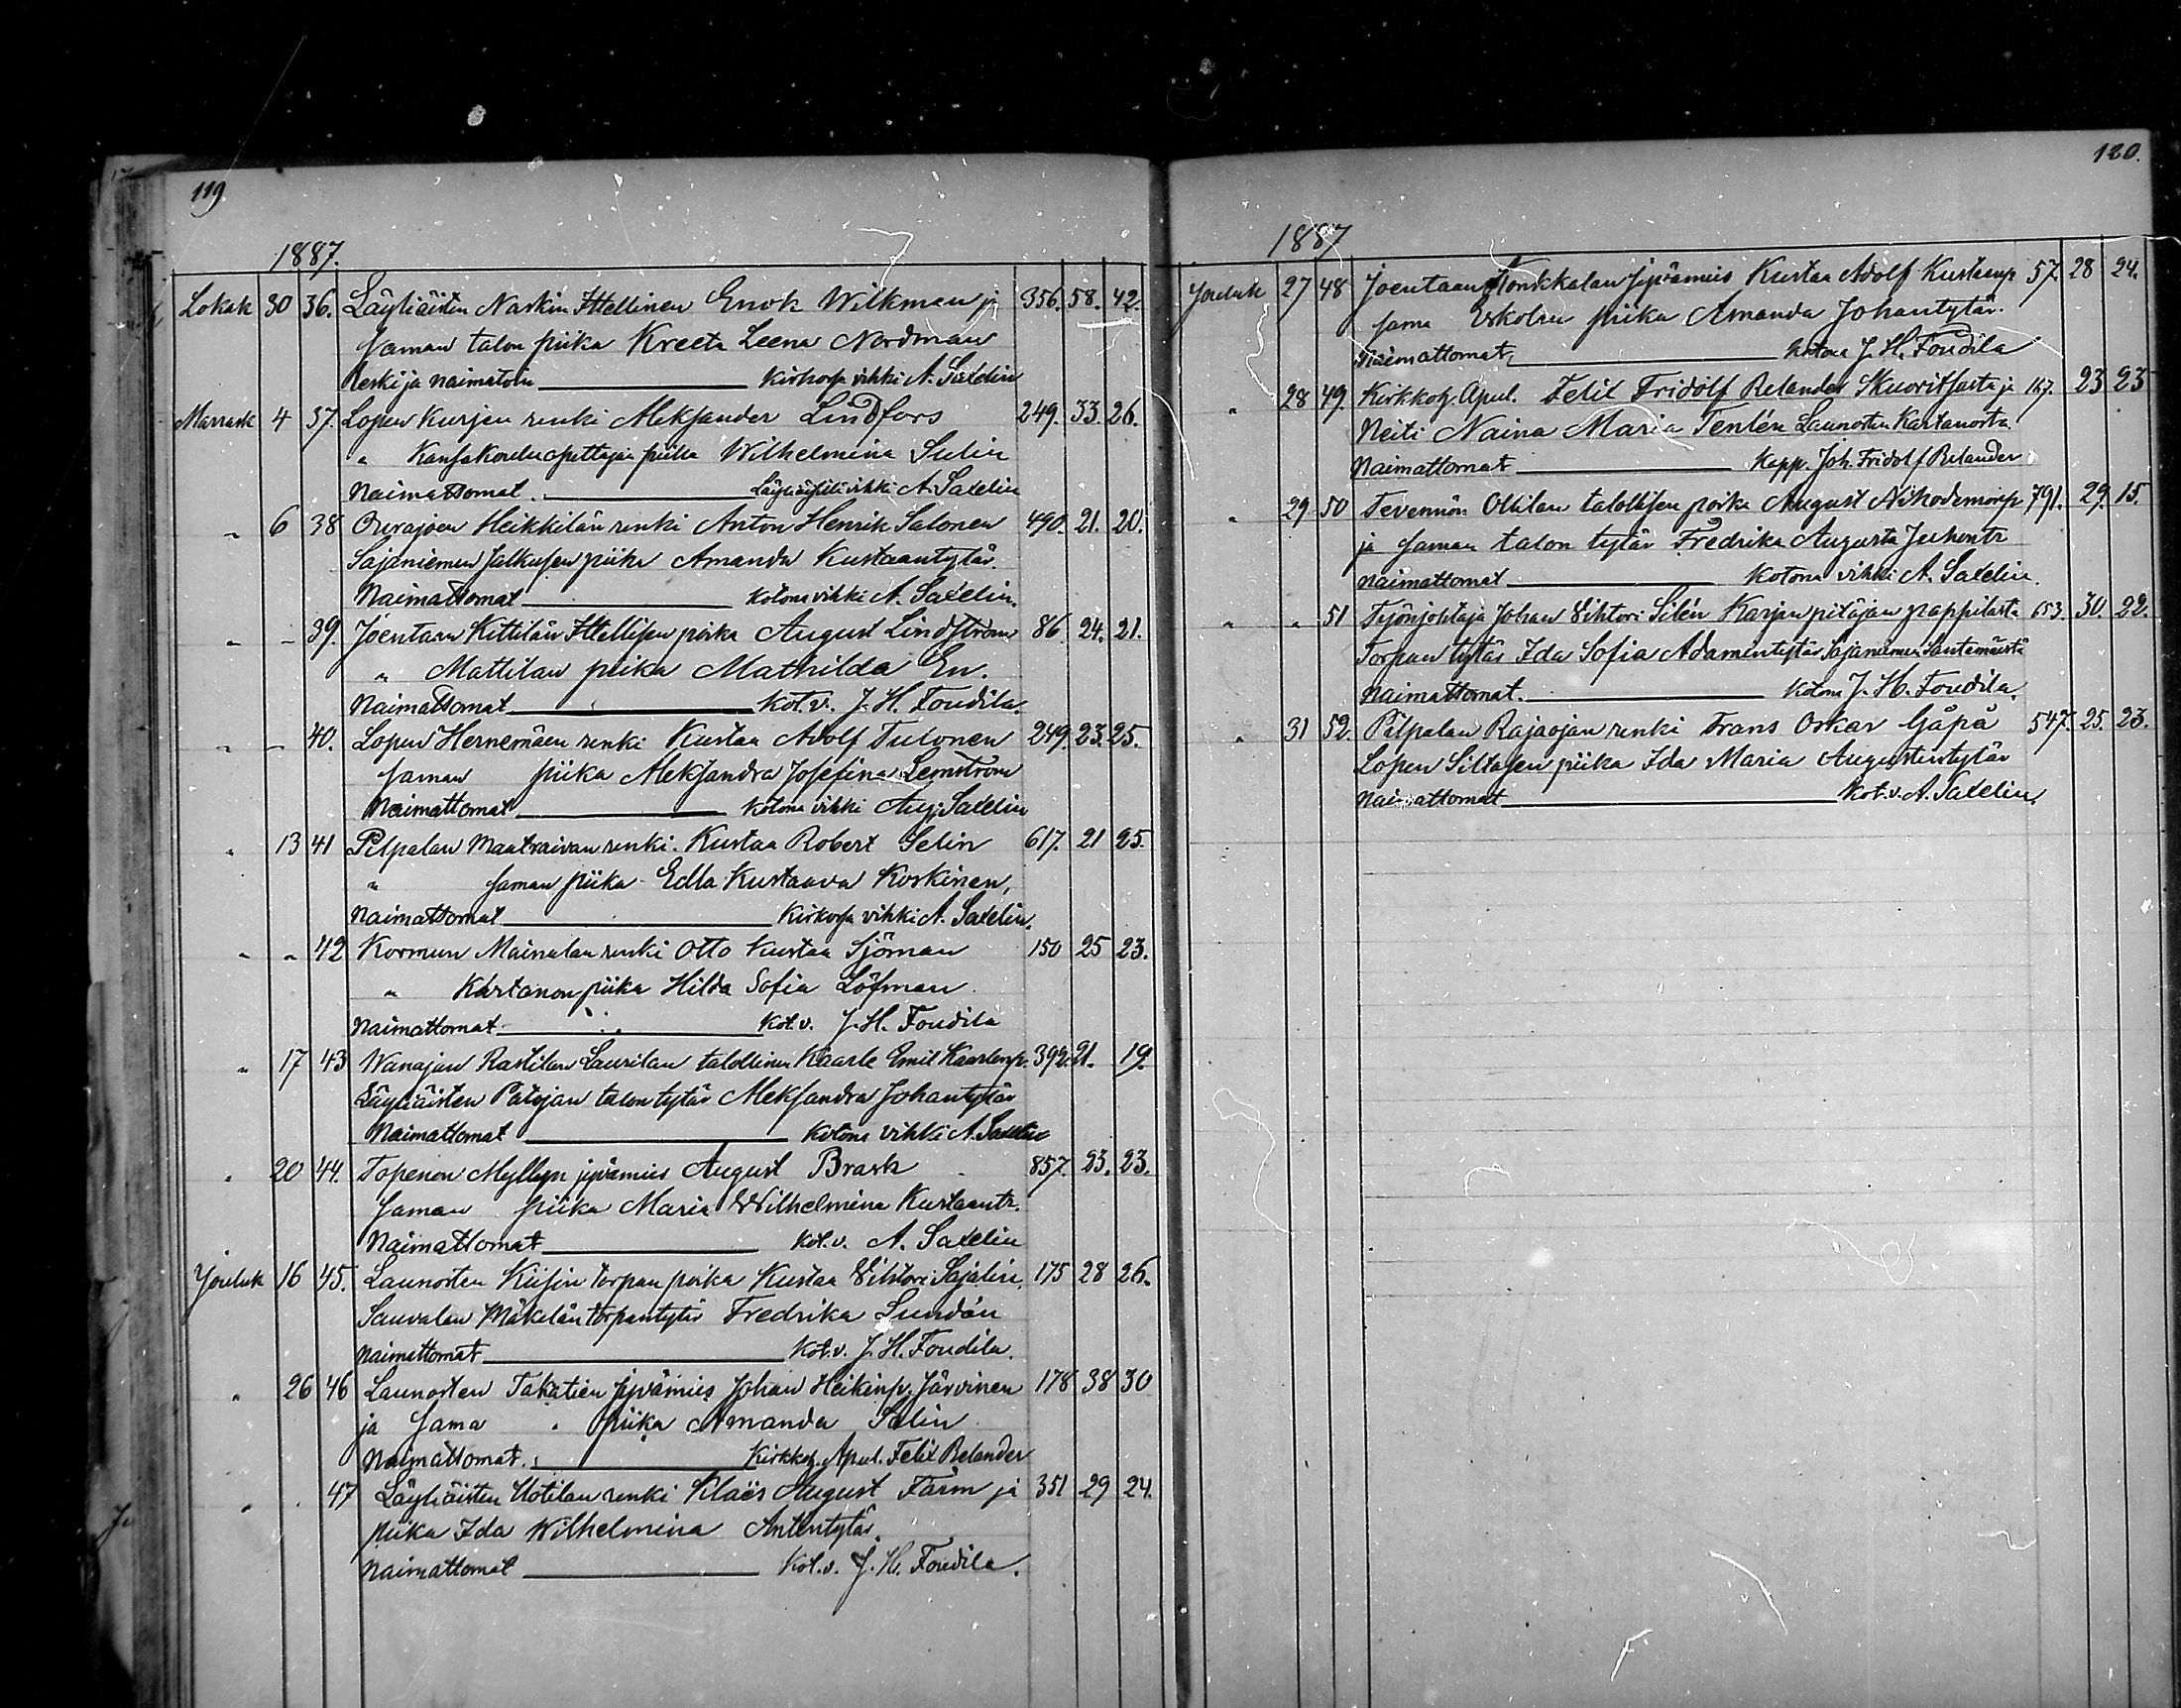 119.
1887.
Lokak 30 36. Läyliäisten Naskin Itellinen Enok Wilkman ja 356. 58. 42.
saman talon piika Kreeta Leena Nordman
Leski ja naimatoin kirkossa vihki A. Saxelin
Marrask 4 37. Lopen Kurjen renki Aleksander Lindfors 249. 33. 26.
" Kansakouluopettajan piika Wilhelmina Sulin
Naimattomat. Läyliäisissä vihki A. Saxelin
" 6 38 Ourajoen Heikkilän renki Anton Henrik Salonen 490. 21. 20.
Sajaniemen Jalkusen piika Amanda Kustaantytär.
Naimattomat kotona vihki A. Saxelin.
" " 39. Joentaan Kittilän Itellisen poika August Lindström 86. 24. 21.
" Mattilan piika Mathilda En.
Naimattomat kot. v. J. H. Foudila.
" " 40. Lopen Hernemäen renki Kustaa Adolf Tulonen 249. 23. 25.
saman piika Aleksandra Josefina Lemström
Naimattomat kotona vihki Aug. Saxelin
" 13 41 Pilpalan Maatraivan renki Kustaa Robert Selin 617. 21 25.
" saman piika Edla Kustaava Koskinen,
Naimattomat Kirkossa vihki A. Saxelin.
" " 42 Kormun Mainalan renki Otto Kustaa Sjöman 150 25 23.
" Kartanon piika Hilda Sofia Löfman
Naimattomat kot. v. J. H. Foudila
" 17 43 Wanajan Rastilan Laurilan talollinen Kaarle Emil Kaarlenp. 392. 21. 19.
Läyliäisten Patojan talon tytär Aleksandra Johantytär
Naimattomat kotona vihki A. Saxelin
" 20 44. Topenon Myllyn jyvämies August Brask 857. 23. 23.
saman piika Maria Wilhelmina Kustaantr.
Naimattomat kot. v. A. Saxelin
Jouluk 16 45. Launosten Kiisin torpan poika Kustaa Vihtori Sajalin 175 28 26.
Sauvalan Mäkelän torpantytär Fredrika Lundán
Naimattomat kot. v. J. H. Foudila.
" 26 46 Launosten Takatien jyvämies Johan Heikinp. Järvinen 178 38 30
ja sama " piika Amanda Salin
Naimattomat. Kirkkoh. Apul. Felix Relander
" " 47 Läyliäisten Uotilan renki Klaës August Färm ja 351 29 24.
piika Ida Wilhelmina Antintytär.
Naimattomat kot. v. J. H. Foudila.
120.
1887
Jouluk 27 48 Joentaan Honkkalan jyvämies Kustaa Adolf Kustaanp 57. 28 24.
sama Eskolan piika Amanda Johantytär.
Naimattomat, kotona J. H. Foudila
" 28 49. Kirkkoh. Apul. Felix Fridolf Relander Skuoritsasta ja 167. 23 23
Neiti Naina Maria Tenlén Launosten Kartanosta
Naimattomat Kapp. Joh. Fridolf Relander
" 29 50 Tevennön Ollilan talollisen poika August Nikodemusp 791. 29. 15.
ja saman talon tytär Fredrika Augusta Juhontr
naimattomat kotona vihki A. Saxelin.
" " 51 Työnjohtaja Johan Vihtori Silén Karjan pitäjän pappilasta 653. 30. 22.
Torpan tytär Ida Sofia Adamintytär Sajaniemen Santamäestä
naimattomat. kotona J. H. Foudila.
" 31 52. Pilpalan Rajaojan renki Frans Oskar Gåpå 547. 25. 23.
Lopen Siltasen piika Ida Maria Augustintytär
naimattomat kot. v. A. Saxelin.